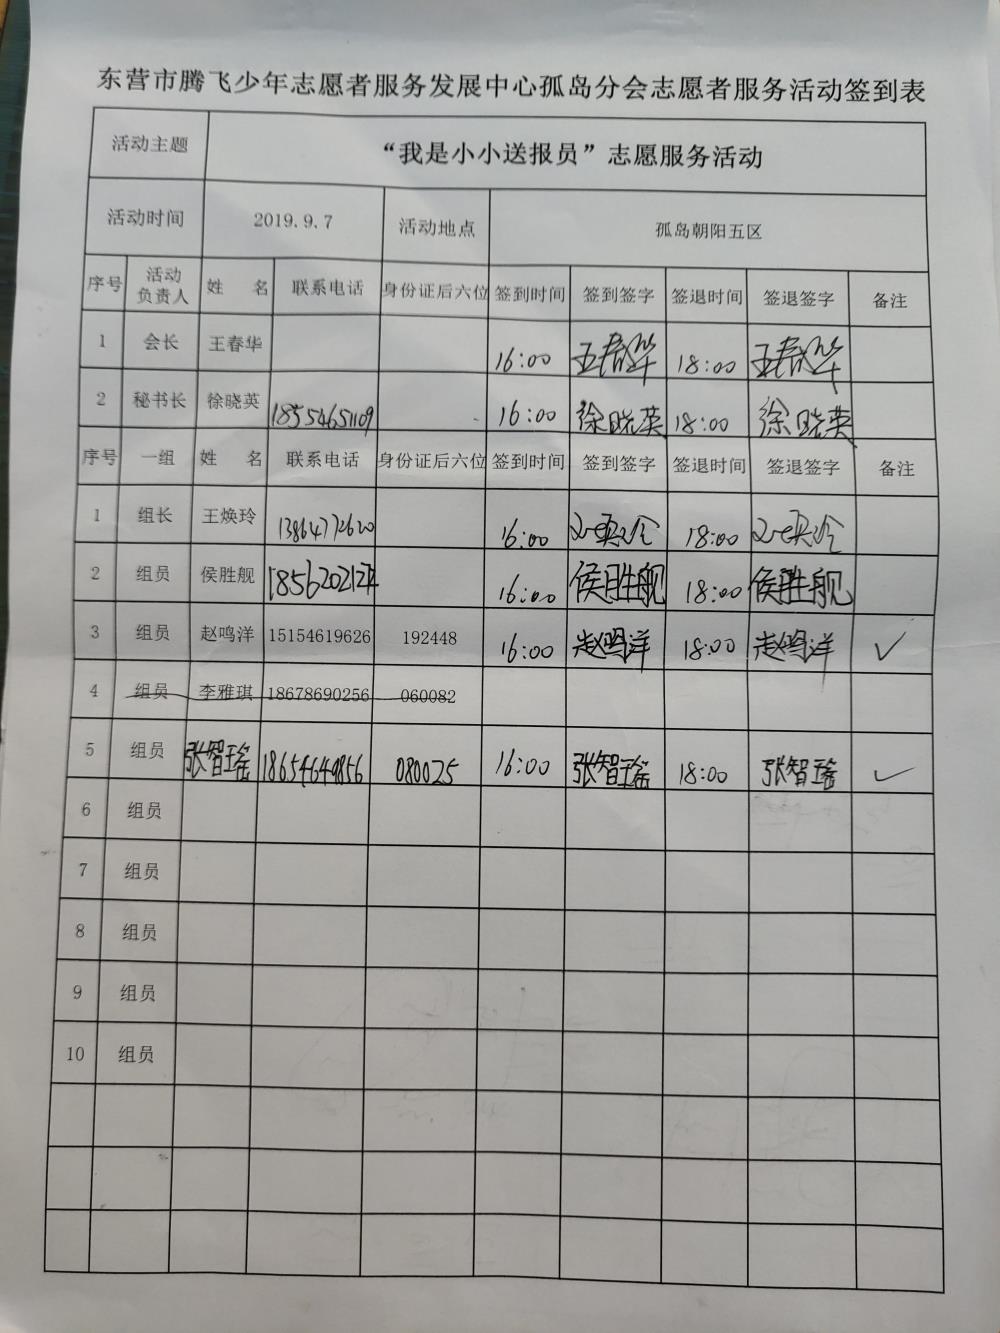 东营市腾飞少年志愿者服务发展中心孤岛分会志愿者服务活动签到表
活动主题 “我是小小送报员”志愿服务活动
活动时间 2019.9.7 活动地点 孤岛朝阳五区
序号 活动负责人 姓名 联系电话 身份证后六位 签到时间 签到签字 签退时间 签退签字 备注
1 会长 王春华 16:00 王春华 18:00 王春华
2 秘书长 徐晓英 18554651109 16:00 徐晓英 18:00 徐晓英
序号 一组 姓名 联系电话 身份证后六位 签到时间 签到签字 签退时间 签退签字 备注
1 组长 王焕玲 13864772620 16:00 王焕玲 18:00 王焕玲
2 组员 侯胜舰 16:00 侯胜舰 18:00 侯胜舰
3 组员 赵鸣洋 15154619626 192448 16:00 赵鸣洋 18:00 赵鸣洋 ✓
4 组员 李雅琪 18678690256 060082
5 组员 张智瑶 18654649856 080025 16:00 张智瑶 18:00 张智瑶 ✓
6 组员
7 组员
8 组员
9 组员
10 组员